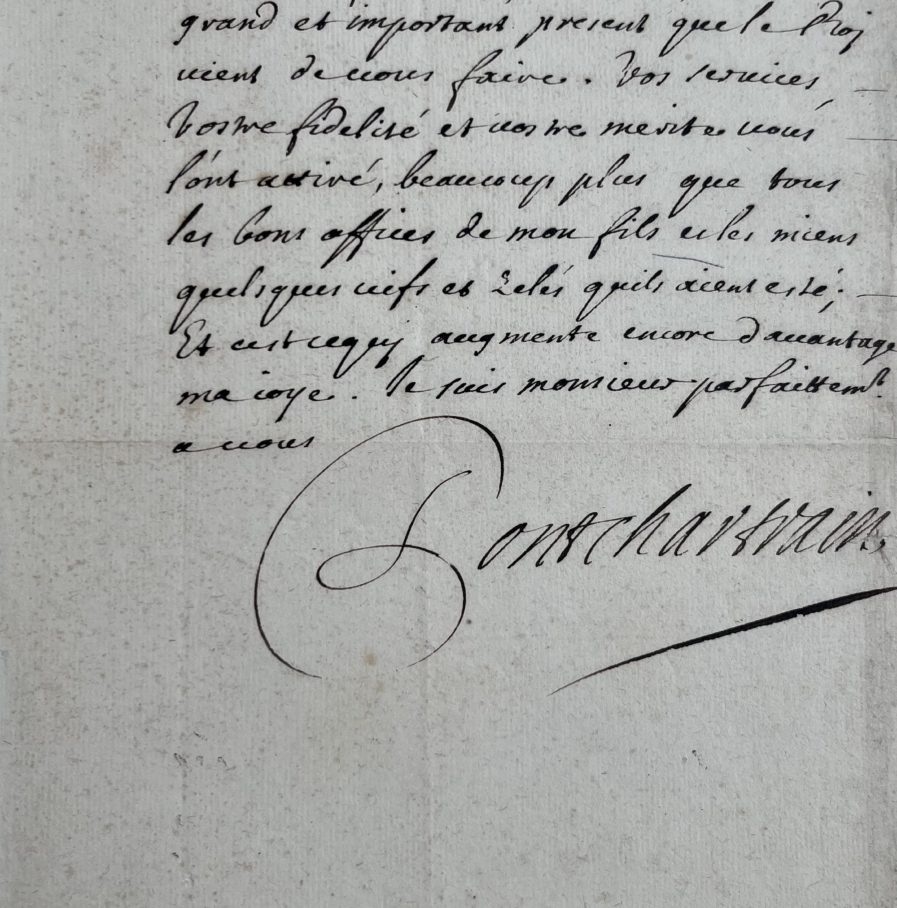 grand et important present que le Roy
vient de vous faire. Vos services,
Vostre fidelité et vostre merite vous
l'ont attiré, beaucoup plus que tous
les bons offices de mon fils et les miens
quelsques vifs et zelés quils aient esté;
Et cest ce qui augmente encore davantage
ma ioye. Je suis monsieur parfaittemt.
a vous
Pontchartrain,